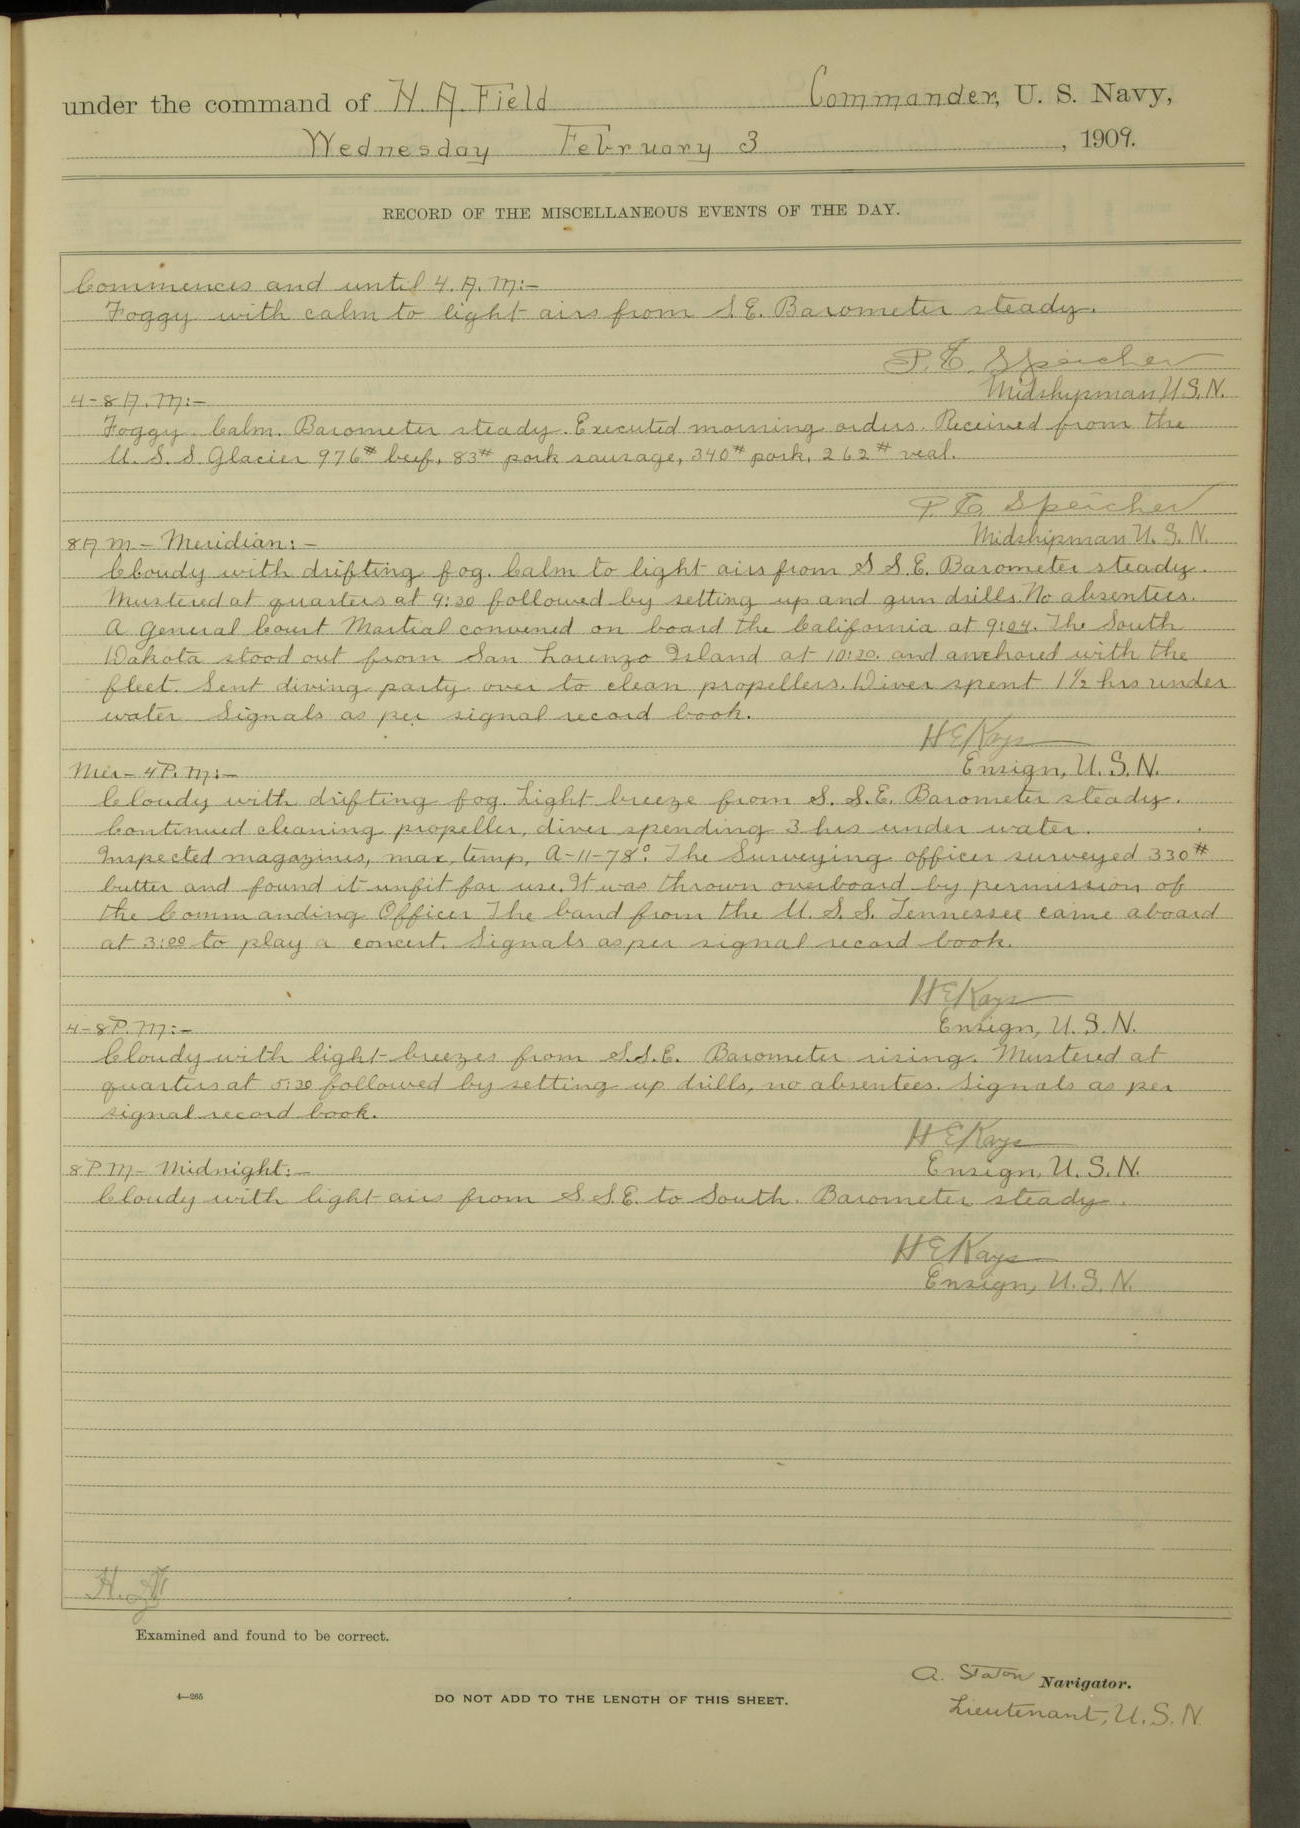 under the command of H. A. Field Commander, U. S. Navy,
Wednesday February 3, 1909.
RECORD OF THE MISCELLANEOUS EVENTS OF THE DAY.
Commences and until 4. A. M:-
Foggy with calm to light airs from S.E. Barometer steady.
P. E. Speicher
Midshipman U.S.N.
4-8 A. M:-
Foggy. Calm. Barometer steady. Executed morning orders. Received from the
U. S. S Glacier 976# beef, 83# pork sausage, 340# pork, 262# veal.
P. E. Speicher
Midshipman U. S. N.
8 A M - Meridian:-
Cloudy with drifting fog. Calm to light airs from S S.E. Barometer steady.
Mustered at quarters at 9:30 followed by setting up and gun drills. No absentees.
A General Court Martial convened on board the California at 9:04. The South
Dakota stood out from San Lorenzo Island at 10:20. and anchored with the
fleet. Sent diving party over to clean propellers. Diver spent 1 1/2 hrs under
water. Signals as per signal record book.
H E Kays
Ensign, U. S. N.
Mer - 4 P. M:-
Cloudy with drifting fog. Light breeze from S. S.E. Barometer steady.
Continued cleaning propeller, diver spending 3 hrs under water.
Inspected magazines, max, temp, A-11-78°. The Surveying officer surveyed 330#
butter and found it unfit for use. It was thrown overboard by permission of
the Commanding Officer The band from the U. S. S. Tennessee came aboard
at 3:00 to play a concert. Signals as per signal record book.
H E Kays
Ensign, U. S. N.
4-8 P. M:-
Cloudy with light breezes from S.S.E. Barometer rising. Mustered at
quarters at 5:30 followed by setting up drills, no absentees. Signals as per
signal record book.
H E Kays
Ensign, U. S. N.
8 P. M - Midnight:-
Cloudy with light airs from S. S.E. to South. Barometer steady.
H E Kays
Ensign, U. S. N.
Examined and found to be correct.
A. Staton Navigator.
4—265 DO NOT ADD TO THE LENGTH OF THIS SHEET.
Lieutenant, U. S. N